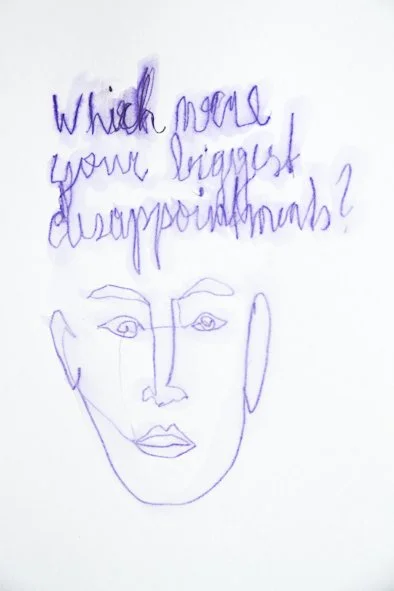 Which were
your biggest
disappointments?